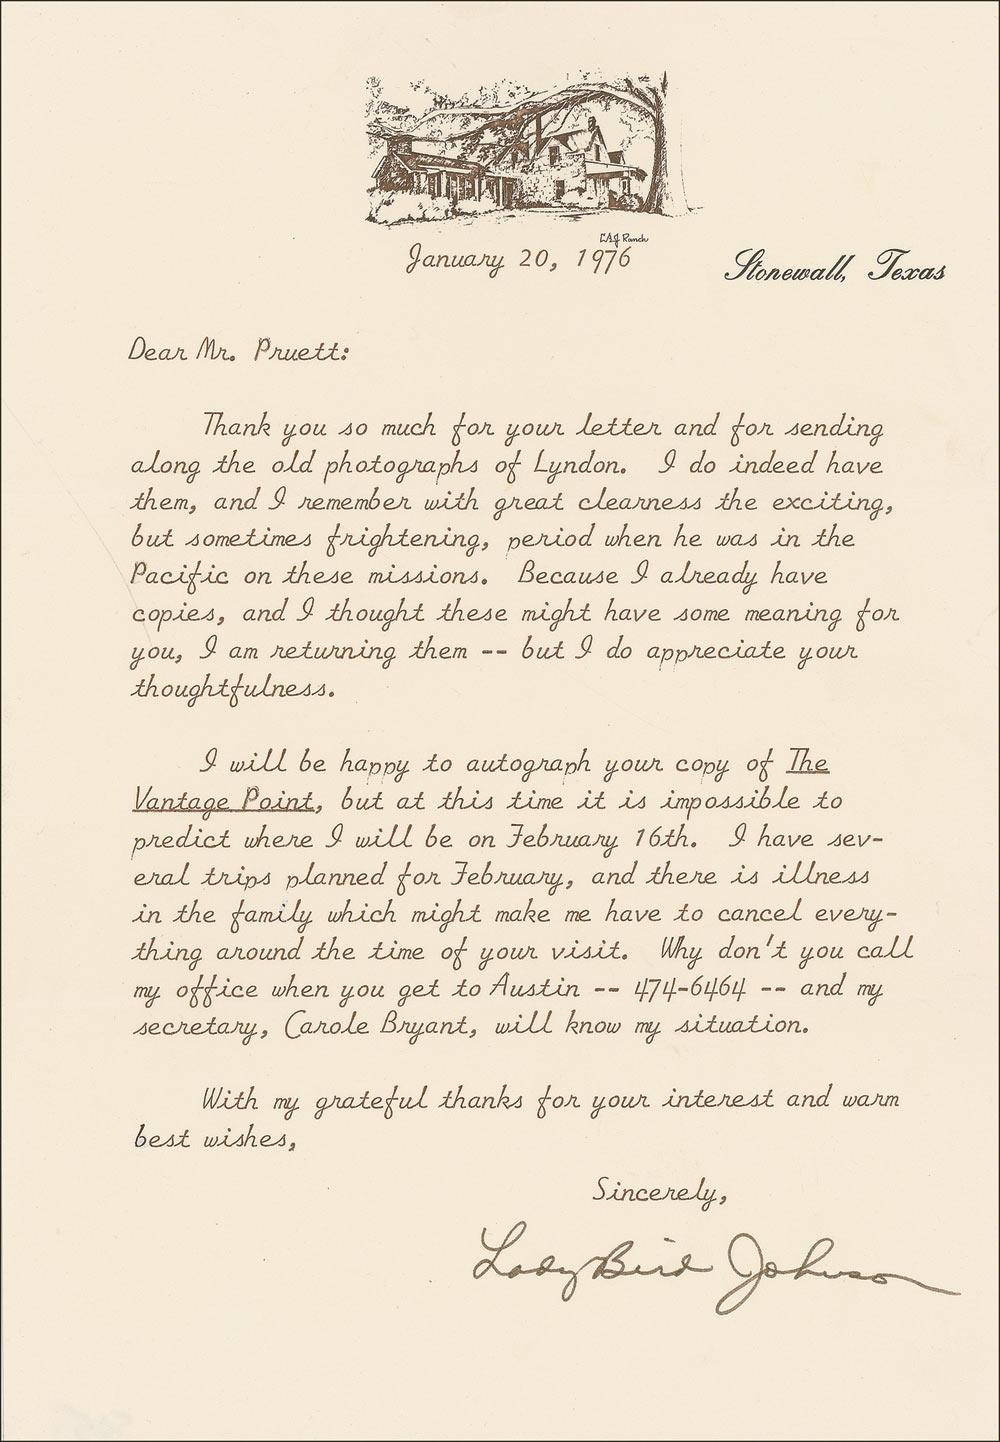 LBJ Ranch
January 20, 1976
Stonewall, Texas
Dear Mr. Pruett:
Thank you so much for your letter and for sending
along the old photographs of Lyndon. I do indeed have
them, and I remember with great clearness the exciting,
but sometimes frightening, period when he was in the
Pacific on these missions. Because I already have
copies, and I thought these might have some meaning for
you, I am returning them -- but I do appreciate your
thoughtfulness.
I will be happy to autograph your copy of The
Vantage Point, but at this time it is impossible to
predict where I will be on February 16th. I have sev-
eral trips planned for February, and there is illness
in the family which might make me have to cancel every-
thing around the time of your visit. Why don't you call
my office when you get to Austin -- 474-6464 -- and my
secretary, Carole Bryant, will know my situation.
With my grateful thanks for your interest and warm
best wishes,
Sincerely,
Lady Bird Johnson